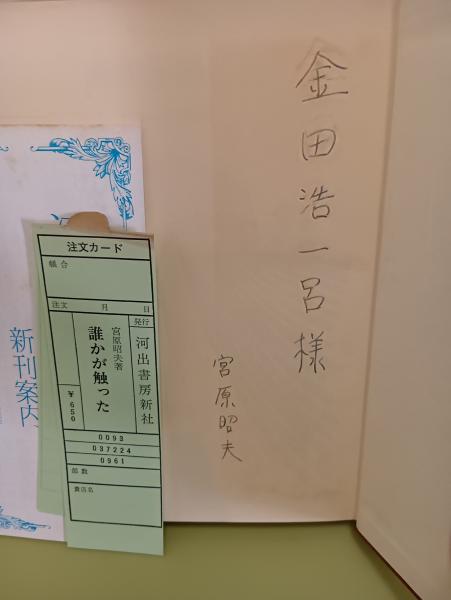 金田浩一呂様
宮原昭夫
注文カード
注文 月 日
発行
河出書房新社
宮原昭夫著
誰かが触った
￥650
0093
037224
0961
部数
貴店名
新刊案内